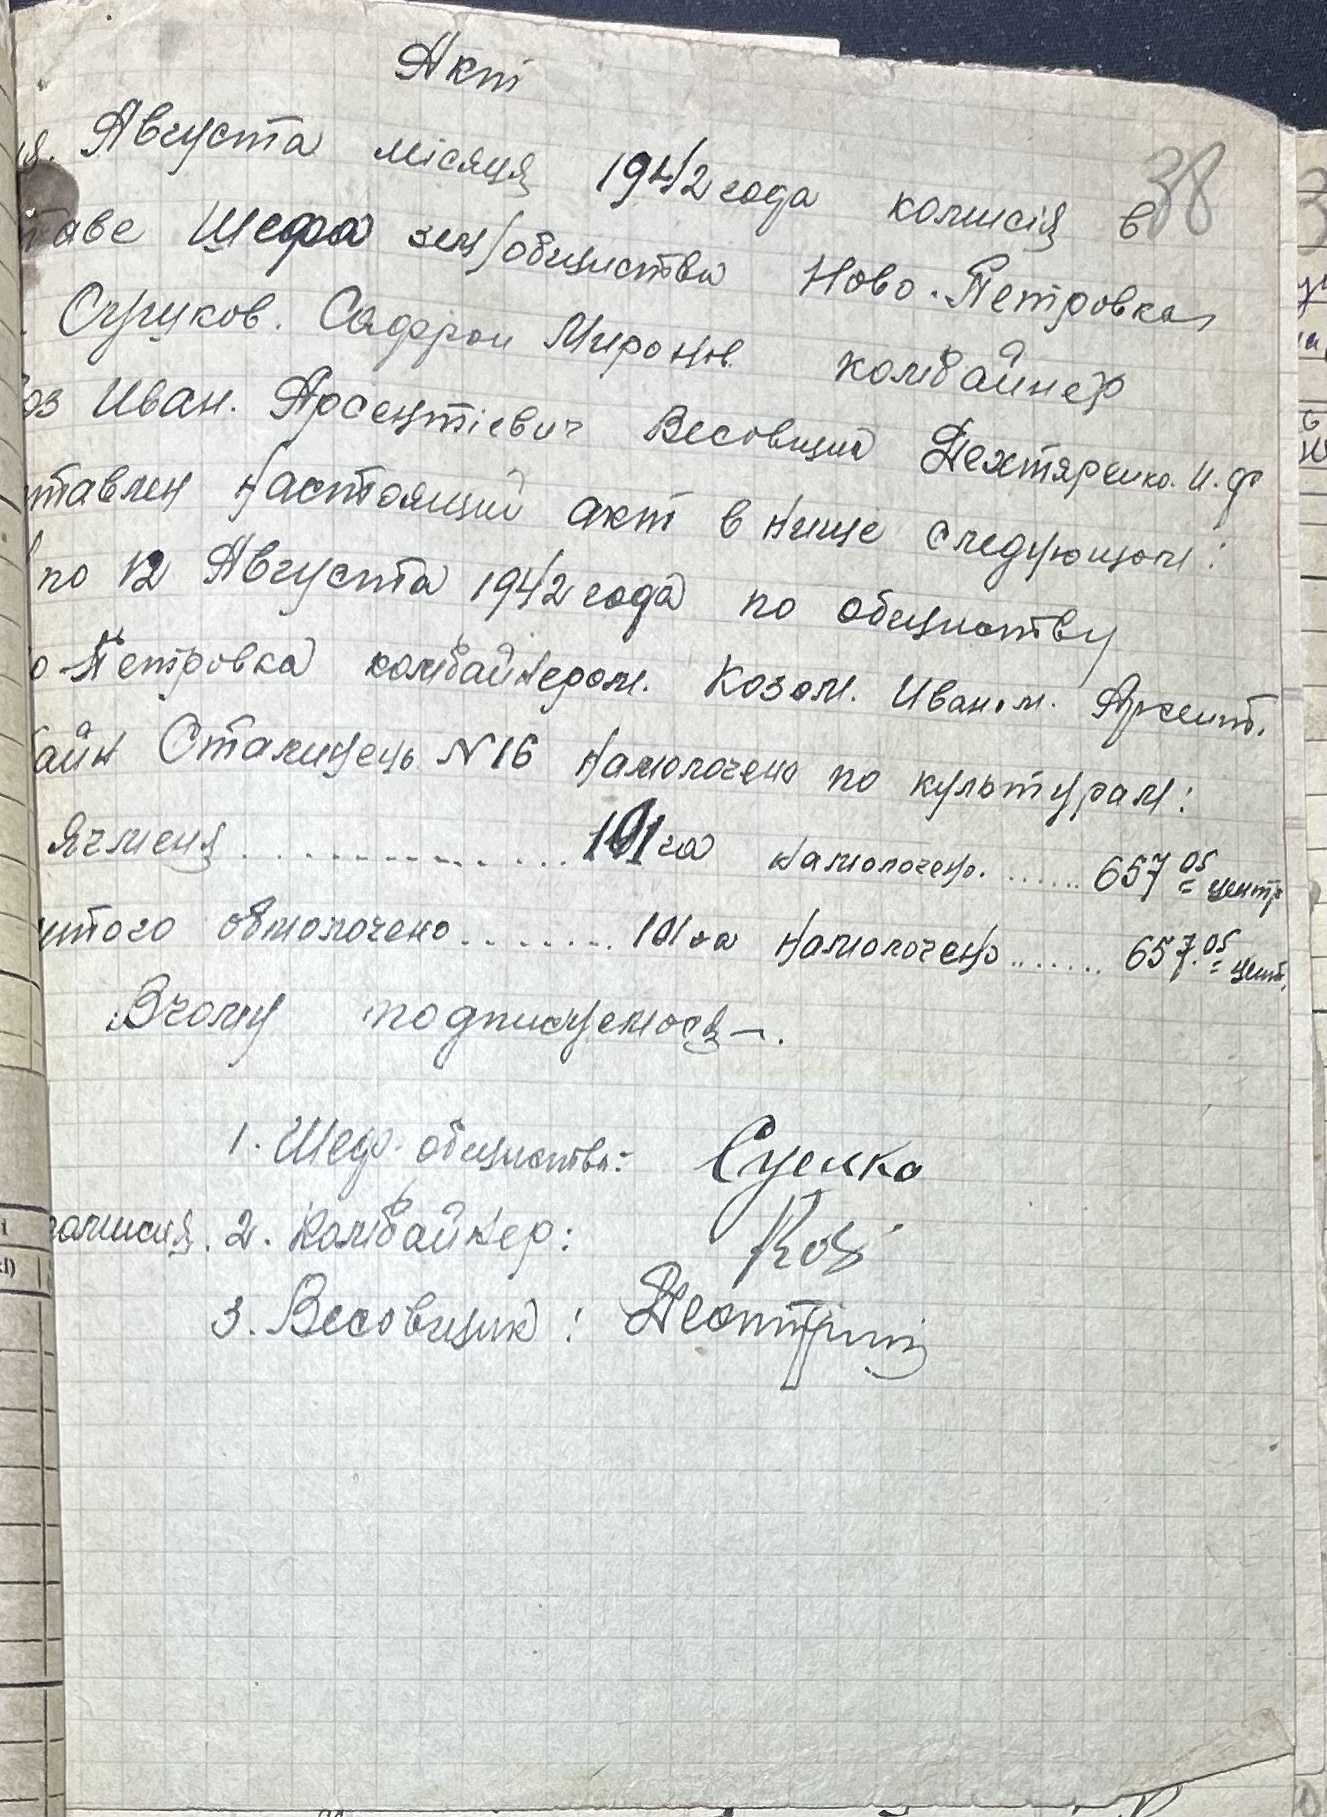 Акт
38
Августа місяця 1942 года комисія в
таве Шефа зем/общиства Ново-Петровка
Сафрон Миронов. комбайнер
оз Иван. Арсентіевич Весовщик Дехтяренко. И. Ф
тавлен настоящий акт в нище следующом:
по 12 Августа 1942 года по общиству
о-Петровка комбайнером. Козом. Иваном. Арсент.
айн Сталинець N 16 намолочено по культурам:
Ячменя .............. 101 га намолочено. ...... 657 05 центр
итого обмолочено ........ 101 га намолочено ....... 657.05 цент.
Вчому подписуемося.
1. Шеф. общиства:
комисия. 2. Комбайнер: Коз
3. Весовщик: